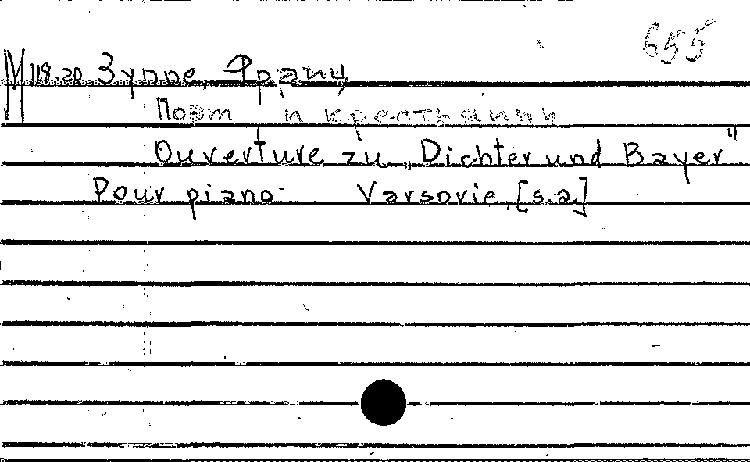 655
М 118.20 Зуппе, Франц
Поэт и крестьянин
Ouverture zu „Dichter und Bayer"
Pour piano Varsovie, [s.a.]